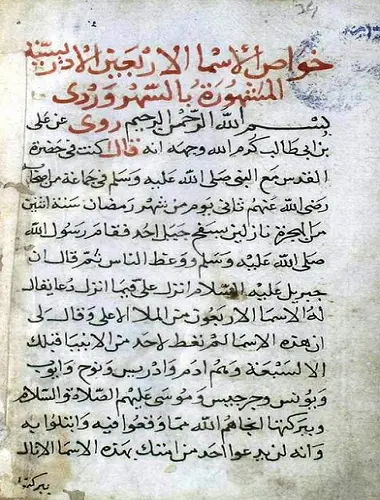 خواص الاسما الاربعين الادريسية
المشهورة بالسهروردى
بسم الله الرحمن الرحيم روى عن على
بن ابى طالب كرم الله وجهه انه قال كنت فى حضرة
القدس مع النبى صلى الله عليه وسلم فى جماعة من اصحابه
رضى الله عنهم ثانى يوم من شهر رمضان سنة اثنين
من الهجرة نازلين بسفح جبل احد فقام رسول الله
صلى الله عليه وسلم ووعظ الناس ثم قال ان
جبريل عليه السلام انزل على فيها انزل دعا يقال
له الاسما الاربعون من الملا الاعلى وقال لى
ان هذه الاسما لم تعط لاحد من الانبيا قبلك
الا لسبعة وهم ادم وادريس ونوح وايوب
ويونس وجرجيس وموسى عليهم الصلاة والسلام
وببركتها انجاهم الله مما وقعوا فيه وابتلوا به
وانه لن يدعوا احد من امتك بهذه الاسما الا نال
ببركتها